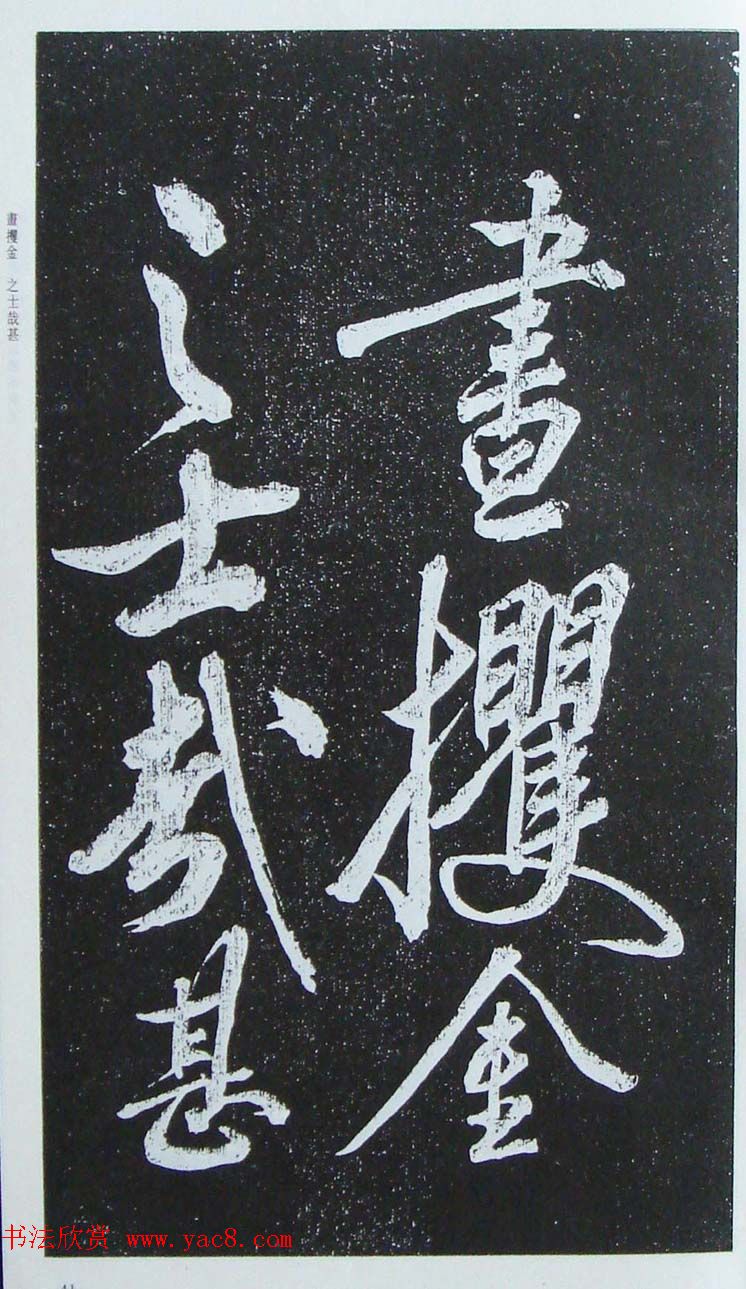 晝攫金
之士哉甚
晝攫金 之士哉甚
书法欣赏 www.yac8.com